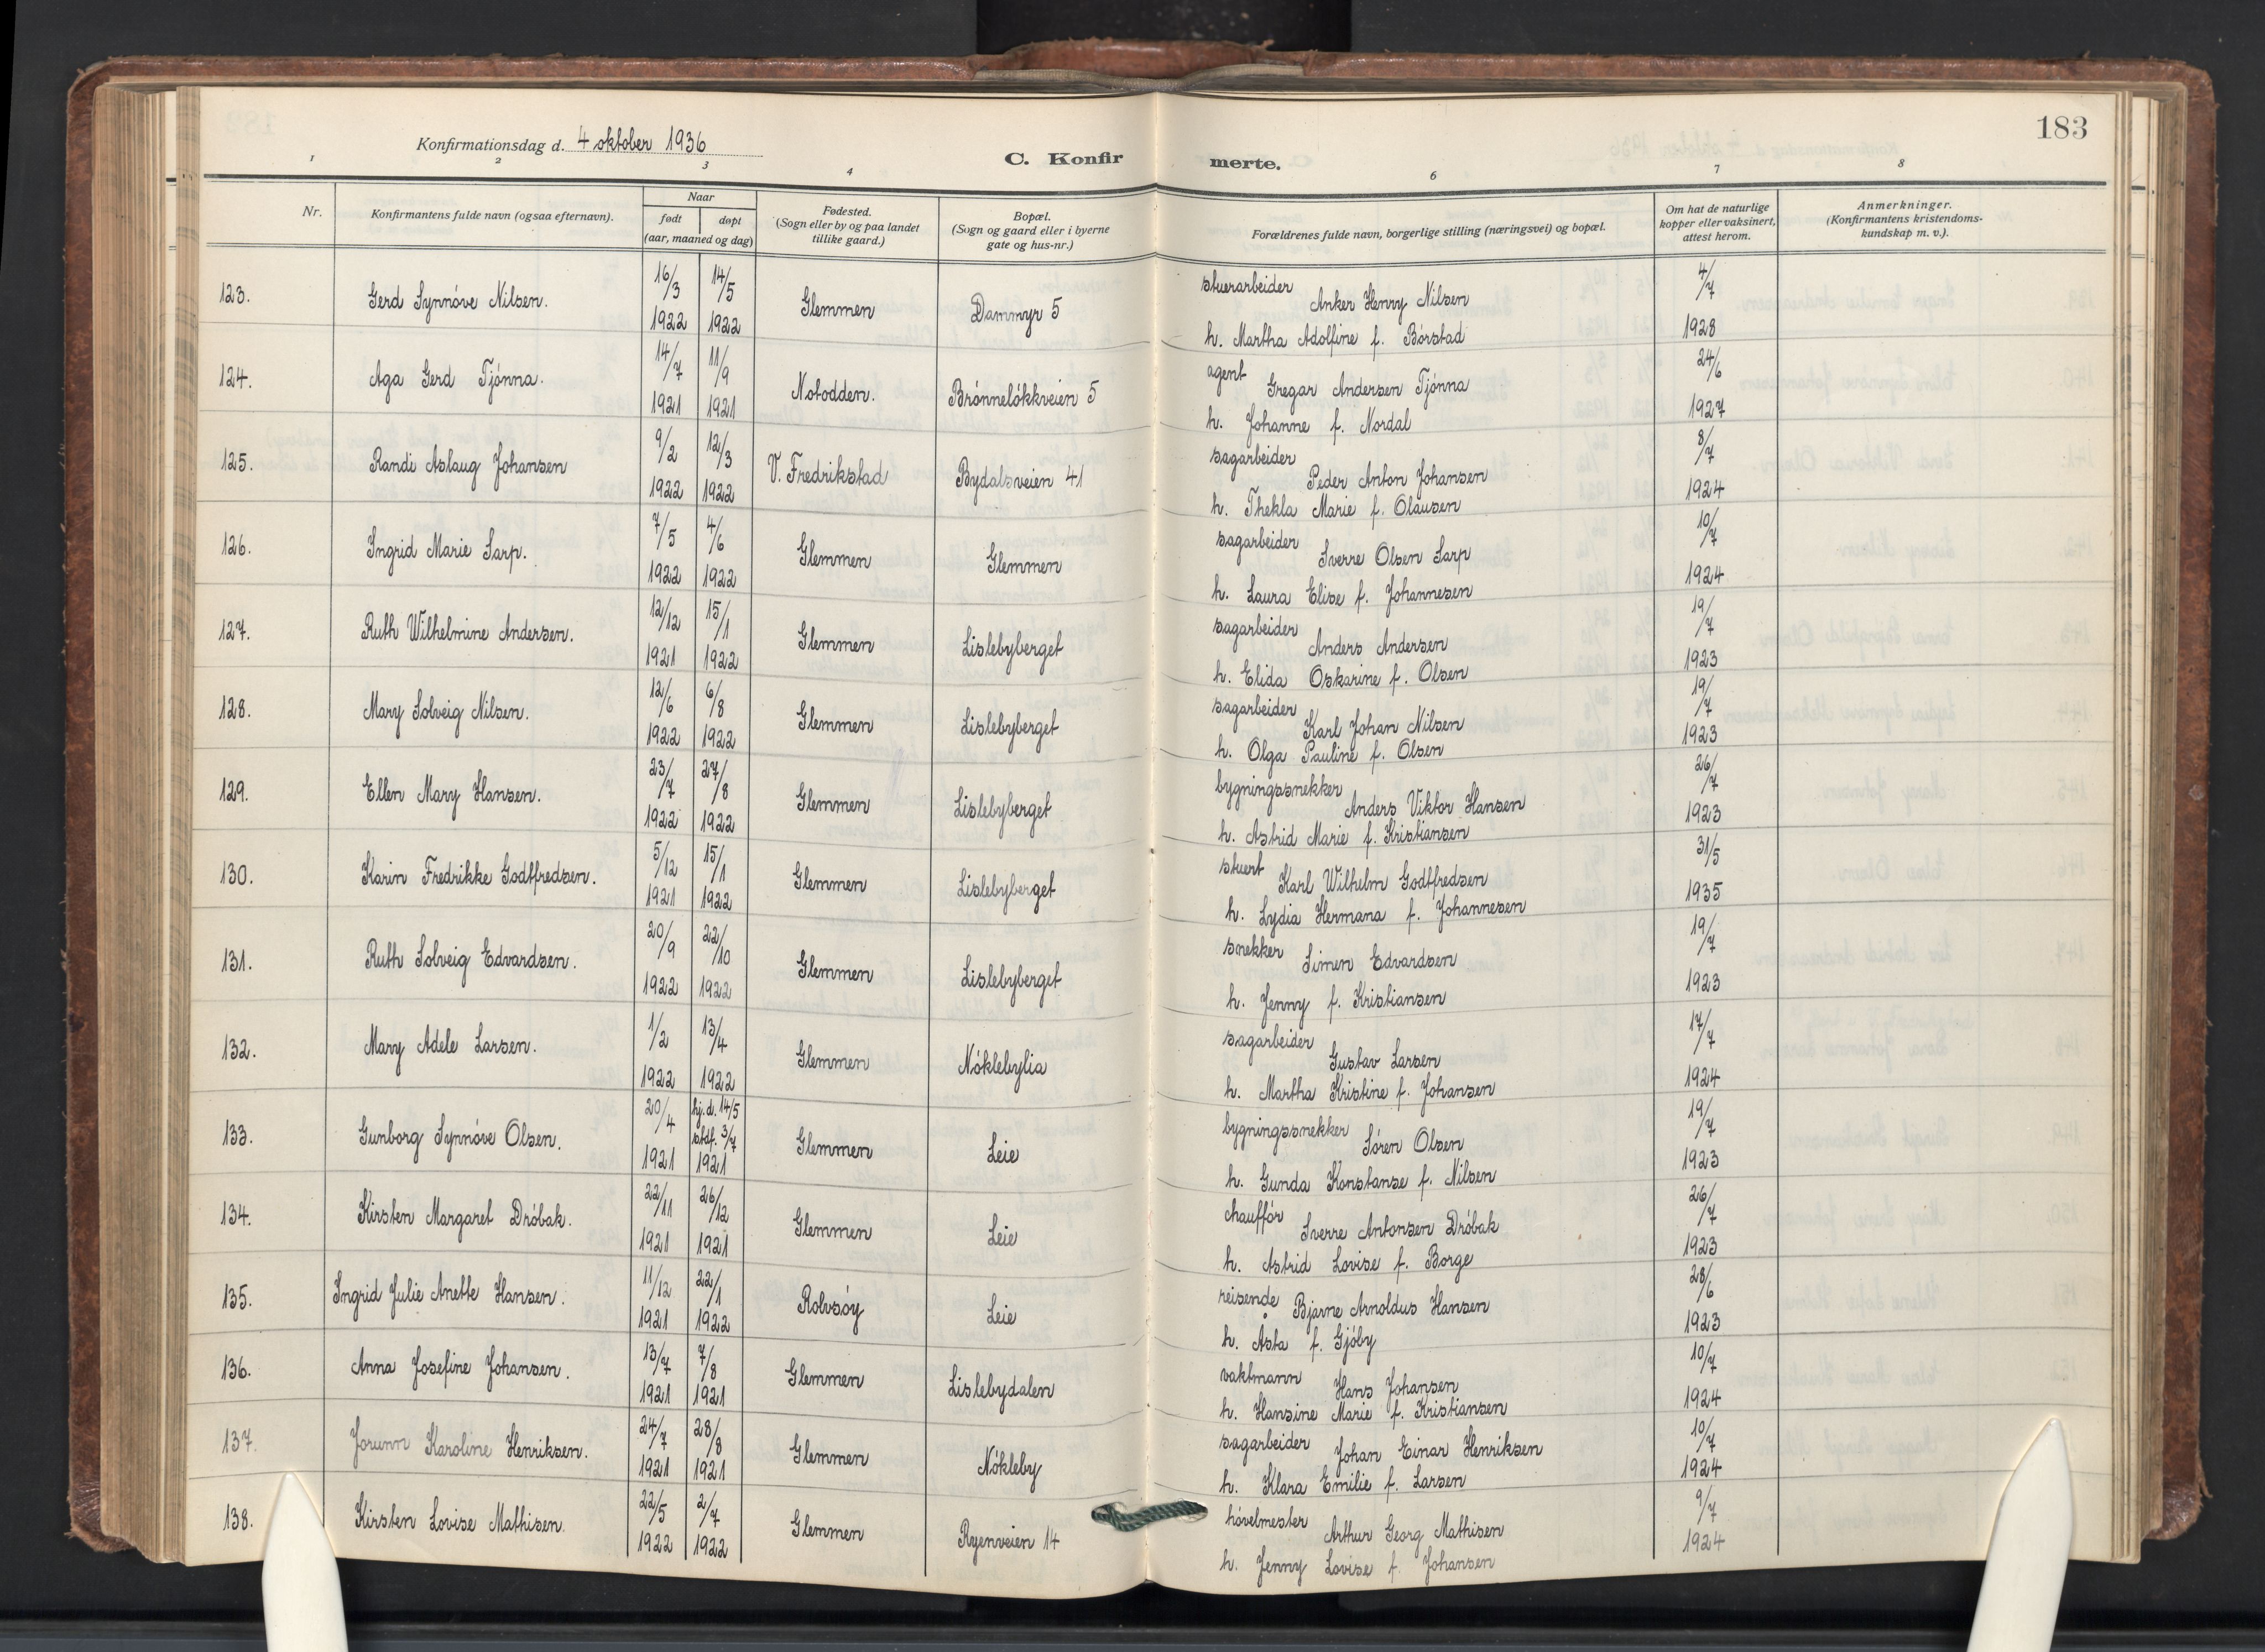 183
Konfirmationsdag d. 4 oktober 1936
C. Konfirmerte.
1 2 3 4 6 7 8
Nr.
Konfirmantens fulde navn (ogsaa efternavn).
Naar
født døpt
(aar, maaned og dag)
Fødested.
(Sogn eller by og paa landet
tillike gaard.)
Bopæl.
(Sogn og gaard eller i byerne
gate og hus-nr.)
Forældrenes fulde navn, borgerlige stilling (næringsvei) og bopæl.
Om hat de naturlige
kopper eller vaksinert,
attest herom.
Anmerkninger.
(Konfirmantens kristendoms-
kundskap m. v.).
123. Gerd Synnóve Nilsen. 16/3 1922 14/5 1922 Glemmen Dammyr 5
stuerarbeider
Anker Henry Nilsen
h. Martha Adolfine f. Bórstad
4/7 1928
124. Aga Gerd Tjónna. 14/7 1921 11/9 1921 Notodden. Brónnelókkveien 5
agent
Gregar Andersen Tjónna
h. Johanne f. Nordal
24/6 1927
125. Randi Aslaug Johansen 9/2 1922 12/3 1922 V. Fredrikstad Bydalsveien 41
sagarbeider
Peder Anton Johansen
h. Thekla Marie f. Olausen
8/7 1924
126. Ingrid Marie Sarp. 7/5 1922 4/6 1922 Glemmen Glemmen
sagarbeider
Sverre Olsen Sarp
h. Laura Elise f. Johannesen
10/7 1924
127. Ruth Wilhelmine Andersen. 12/12 1921 15/1 1922 Glemmen Lislebyberget
sagarbeider
Anders Andersen
h. Elida Oskarine f. Olsen
19/7 1923
128. Mary Solveig Nilsen. 12/6 1922 6/8 1922 Glemmen Lislebyberget
sagarbeider
Karl Johan Nilsen
h. Olga Pauline f. Olsen
19/7 1923
129. Ellen Mary Hansen. 23/7 1922 27/8 1922 Glemmen Lislebyberget
bygningssnekker
Anders Viktor Hansen
h. Astrid Marie f. Kristiansen
26/7 1923
130. Karin Fredrikke Godtfredsen. 5/12 1921 15/1 1922 Glemmen Lislebyberget
stuert
Karl Wilhelm Godtfredsen
h. Lydia Hermana f. Johannesen
31/5 1935
131. Ruth Solveig Edvardsen. 20/9 1922 22/10 1922 Glemmen Lislebyberget
snekker
Simen Edvardsen
h. Jenny f. Kristiansen
19/7 1923
132. Mary Adele Larsen. 1/2 1922 13/4 1922 Glemmen Nóklebylia
sagarbeider
Gustav Larsen
h. Martha Kristine f. Johansen
17/7 1924
133. Gunborg Synnóve Olsen. 20/4 1921 hj.d. 14/5 stdf. 3/7 1921 Glemmen Leie
bygningssnekker
Sóren Olsen
h. Gunda Konstanse f. Nilsen
19/7 1923
134. Kirsten Margaret Dróbak. 22/11 1921 26/12 1921 Glemmen Leie
chauffór
Sverre Antonsen Dróbak
h. Astrid Lovise f. Borge
26/7 1923
135. Ingrid Julie Anette Hansen. 11/12 1921 22/1 1922 Rolvsóy Leie
reisende
Bjarne Arnoldus Hansen
h. Asta f. Gjóby
28/6 1923
136. Anna Josefine Johansen. 13/7 1921 7/8 1921 Glemmen Lislebydalen
vaktmann
Hans Johansen
h. Hansine Marie f. Kristiansen
10/7 1924
137. Jorunn Karoline Henriksen. 24/7 1921 28/8 1921 Glemmen Nókleby
sagarbeider
Johan Einar Henriksen
h. Klara Emilie f. Larsen
10/7 1924
138. Kirsten Lovise Mathisen. 22/5 1922 2/7 1922 Glemmen Ryenveien 14
hóvelmester
Arthur Georg Mathisen
h. Jenny Lovise f. Johansen
9/7 1924